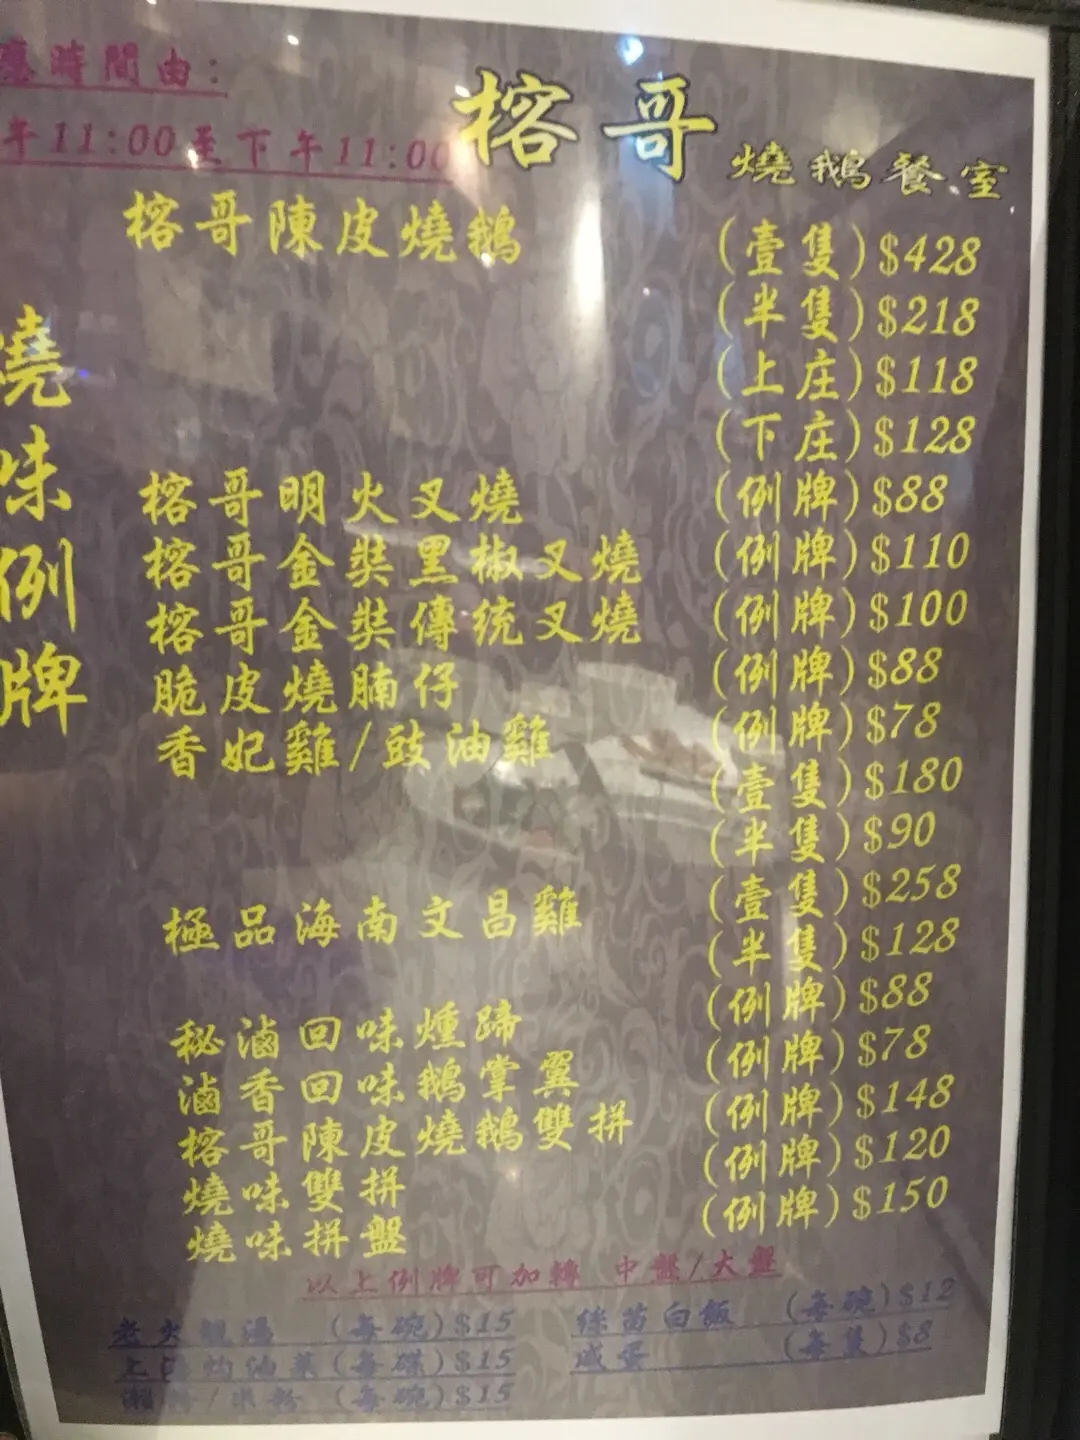 應時間由:
午11:00至下午11:00
榕哥 燒鵝餐室
燒味例牌
榕哥陳皮燒鵝 (壹隻) $428
(半隻) $218
(上庄) $118
(下庄) $128
榕哥明火叉燒 (例牌) $88
榕哥金裝黑椒叉燒 (例牌) $110
榕哥金裝傳統叉燒 (例牌) $100
脆皮燒腩仔 (例牌) $88
香妃雞/豉油雞 (例牌) $78
(壹隻) $180
(半隻) $90
極品海南文昌雞 (壹隻) $258
(半隻) $128
秘滷回味燻蹄 (例牌) $88
滷香回味鵝掌翼 (例牌) $78
榕哥陳皮燒鵝雙拼 (例牌) $148
燒味雙拼 (例牌) $120
燒味拼盤 (例牌) $150
以上例牌可加轉 中盤/大盤
老火靚湯 (每碗) $15 絲苗白飯 (每碗) $12
上 灼油菜 (每碟) $15 咸蛋 (每隻) $8
瀨粉/米粉 (每碗) $15